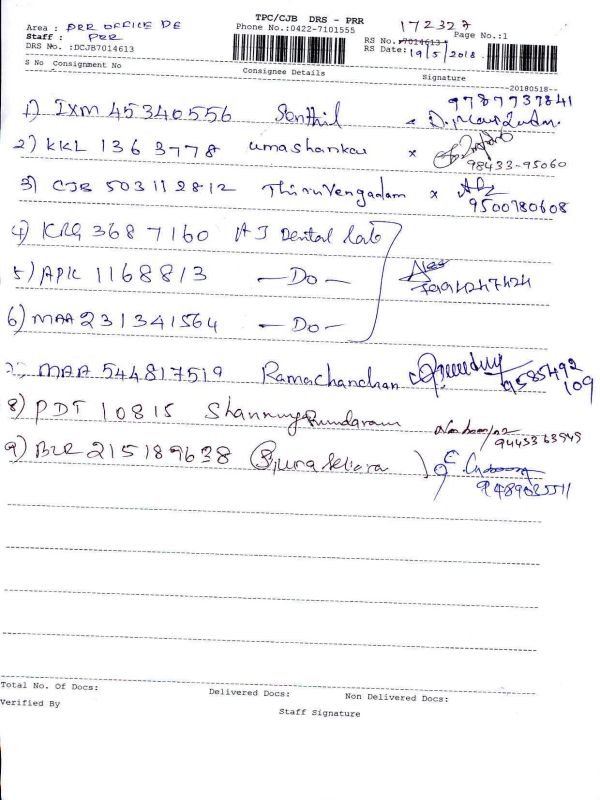 TPC/CJB DRS - PRR
172327
Area : PRR OFFICE DE
Phone No.:0422-7101555
Page No.:1
Staff : PRR
RS No.:7014613
DRS No. :DCJB7014613
RS Date: 19/5/2018
S No Consignment No Consignee Details Signature
--20180518--
9787737841
1) IXM 45340556 Senthil
2) KKL 136 3778 umashankar x
98433-95060
3) CJB 503112812 Thiruvengadam x
9500780608
4) KRG 3687160 A J Dental lab
5) APK 1168813 - Do -
6) MAA 231341564 - Do -
7) MAA 544817519 Ramachandran
9585492
109
8) PDT 10815
9443363949
9) BZR 215189638
9489035511
Total No. Of Docs: Delivered Docs: Non Delivered Docs:
Verified By
Staff Signature